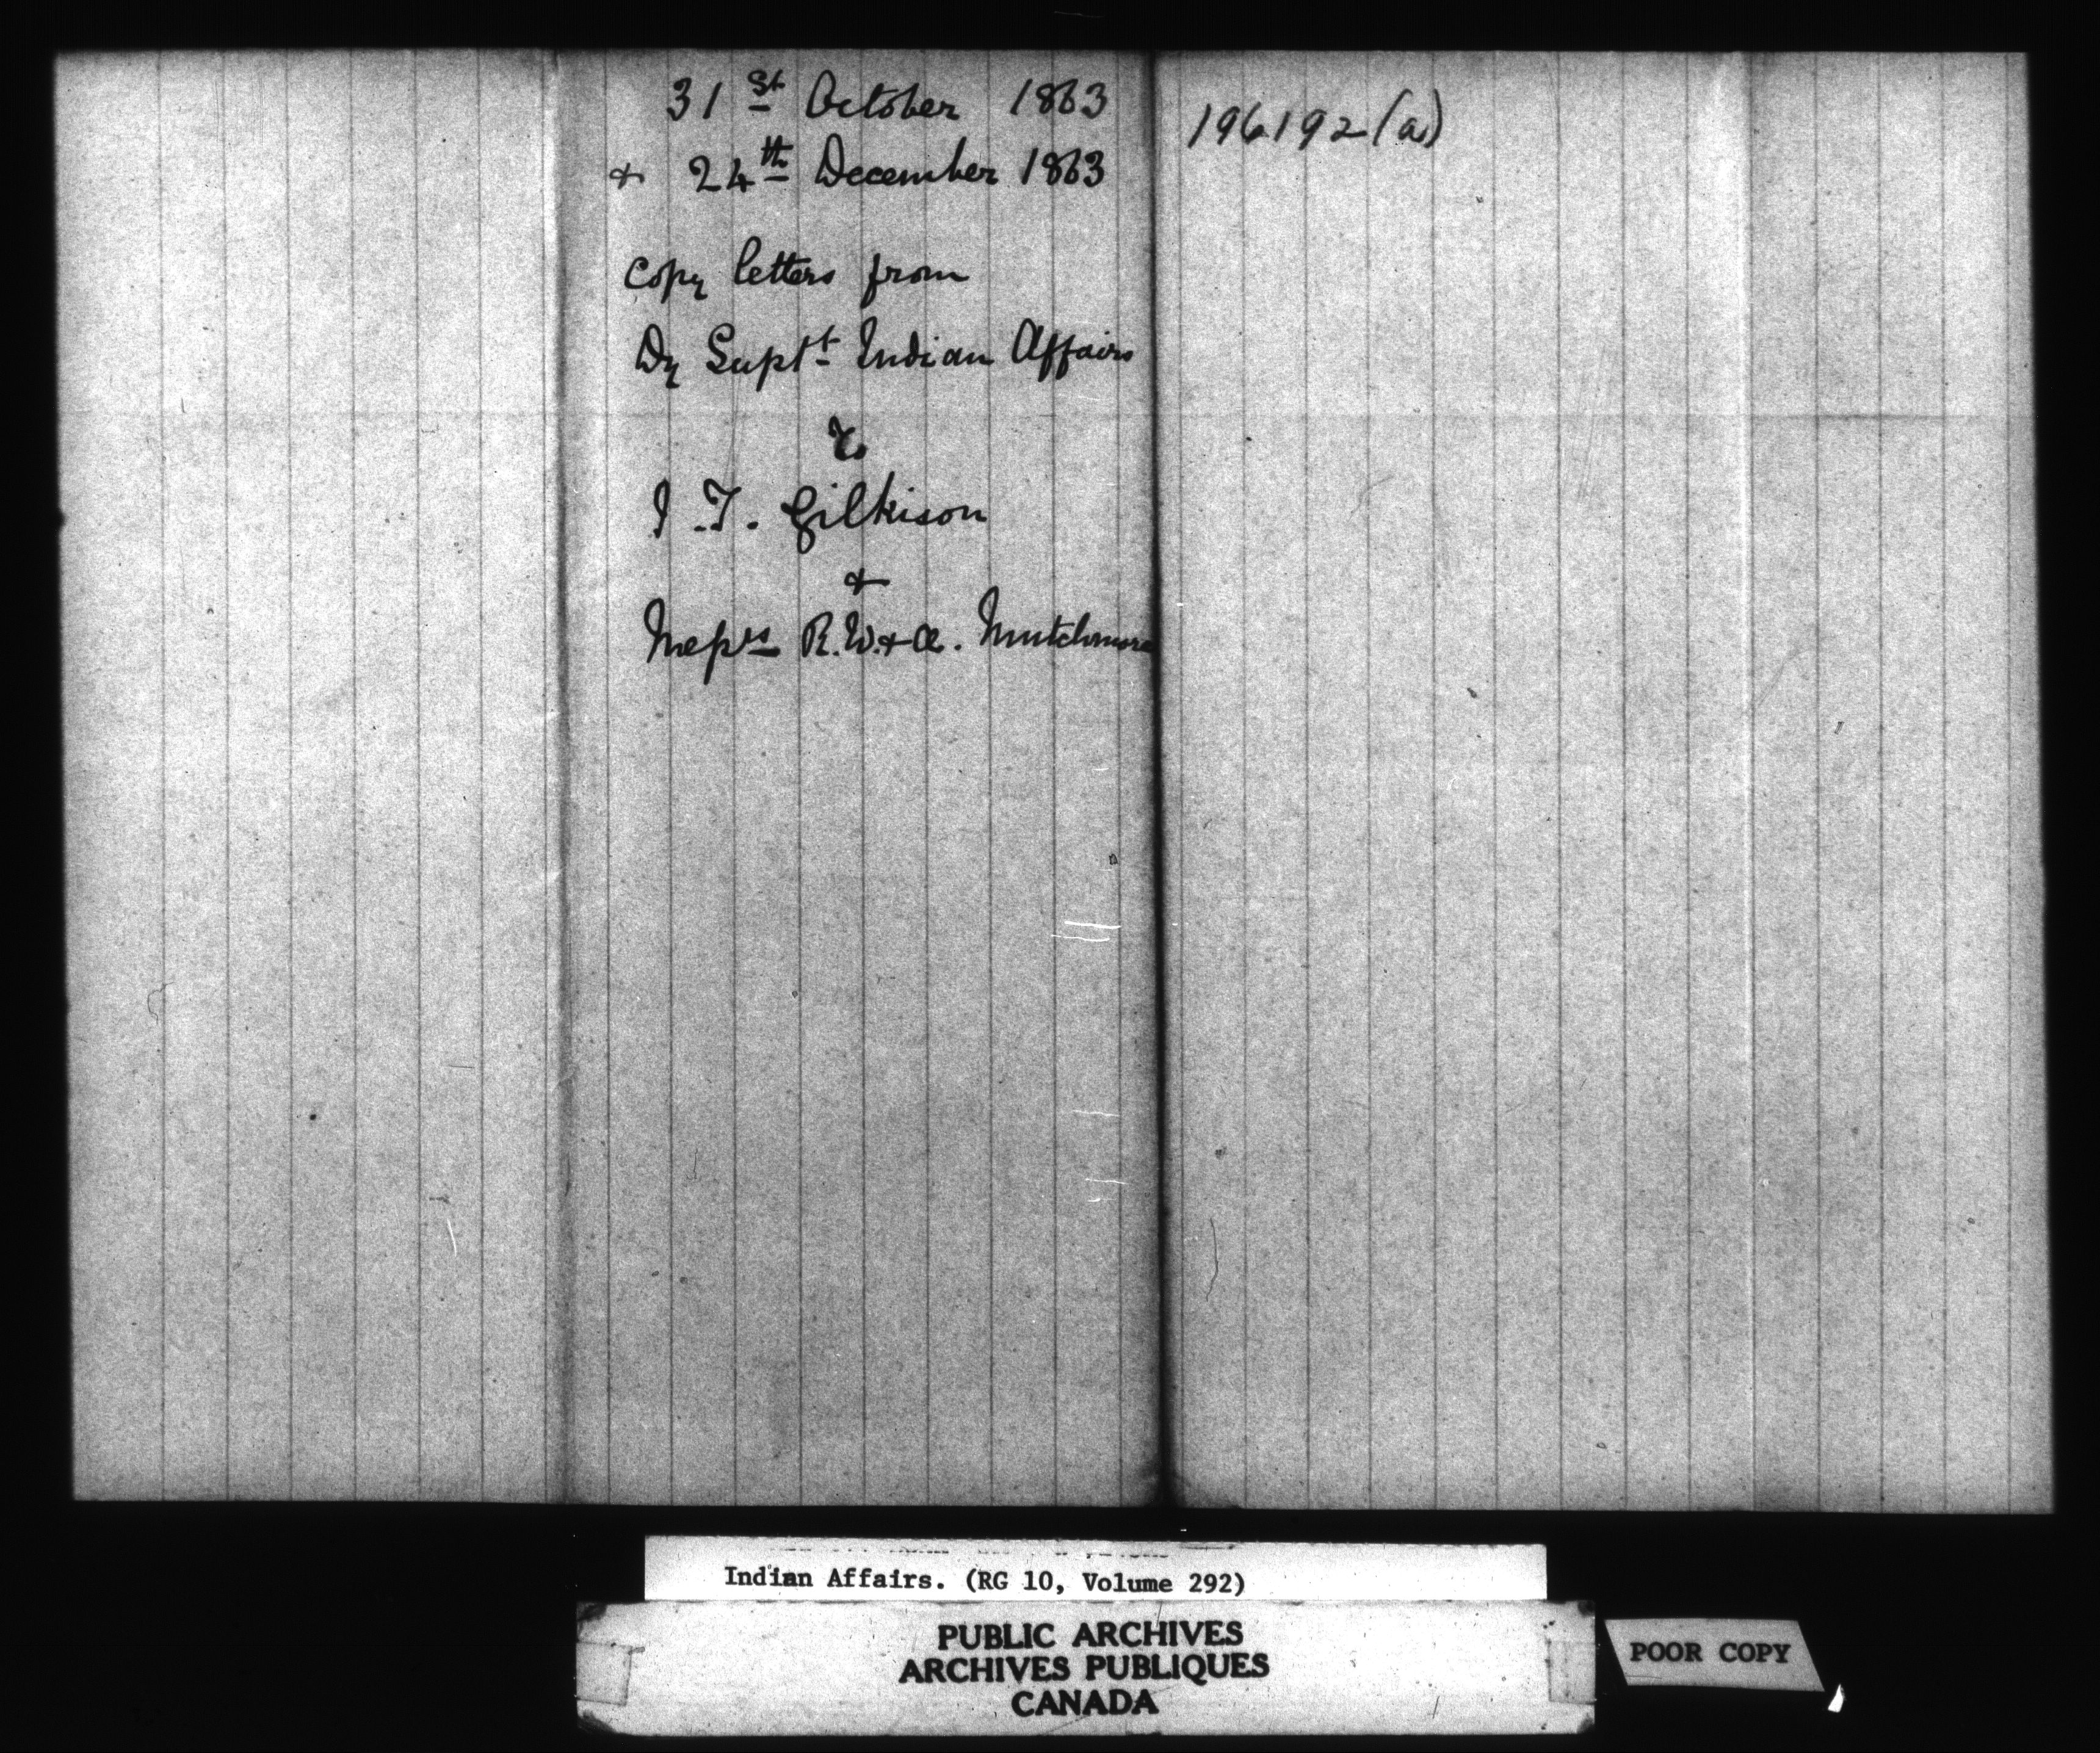 31st October 1863
& 24th December 1863
Copy letters from
Dy Supt Indian Affairs
to
J. T. Gilkison
&
Messrs R. W. & A. Mutchmore
196192(a)
Indian Affairs. (RG 10, Volume 292)
PUBLIC ARCHIVES
ARCHIVES PUBLIQUES
CANADA
POOR COPY